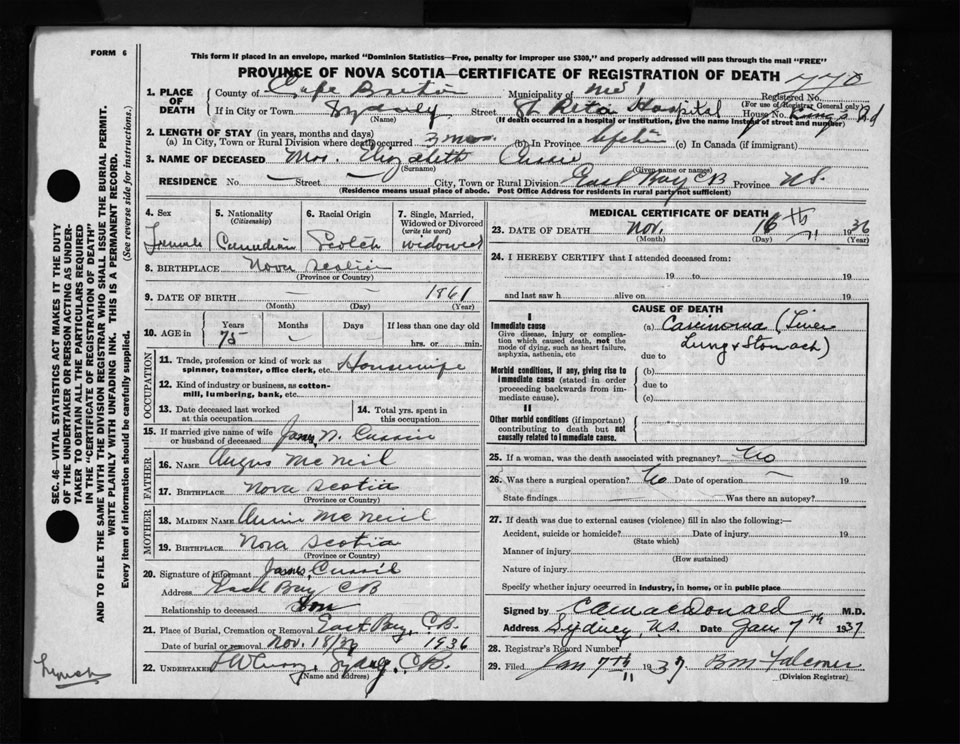 FORM 6
This form if placed in an envelope, marked "Dominion Statistics—Free, penalty for improper use $300," and properly addressed will pass through the mail "FREE"
PROVINCE OF NOVA SCOTIA—CERTIFICATE OF REGISTRATION OF DEATH
1. PLACE OF DEATH County of Cape Breton Municipality of Registered No. (For use of Registrar General only)
If in City or Town Sydney (Name) Street St Rita Hospital House No. Kings Rd
(If death occurred in a hospital or institution, give the name instead of street and number)
2. LENGTH OF STAY (in years, months and days)
(a) In City, Town or Rural Division where death occurred 3 mos. (b) In Province lifetime (c) In Canada (if immigrant)
3. NAME OF DECEASED Mrs. Elizabeth
(Surname) (Given name or names)
RESIDENCE No. — Street — City, Town or Rural Division East Bay CB Province NS.
(Residence means usual place of abode. Post Office Address for residents in rural party not sufficient)
4. Sex Female
5. Nationality (Citizenship) Canadian
6. Racial Origin Scotch
7. Single, Married, Widowed or Divorced (write the word) widowed
8. BIRTHPLACE Nova Scotia
(Province or Country)
9. DATE OF BIRTH — — 1861
(Month) (Day) (Year)
10. AGE in Years 75 Months — Days If less than one day old hrs. or min.
OCCUPATION
11. Trade, profession or kind of work as spinner, teamster, office clerk, etc. Housewife
12. Kind of industry or business, as cotton-mill, lumbering, bank, etc.
13. Date deceased last worked at this occupation
14. Total yrs. spent in this occupation
15. If married give name of wife or husband of deceased James N.
FATHER
16. NAME Angus McNeil
17. BIRTHPLACE Nova Scotia
(Province or Country)
MOTHER
18. MAIDEN NAME Annie McNeil
19. BIRTHPLACE Nova Scotia
(Province or Country)
20. Signature of informant James
Address Bay CB
Relationship to deceased Son
21. Place of Burial, Cremation or Removal East Bay, C.B.
Date of burial or removal Nov. 18/36 1936
22. UNDERTAKER Sydney, C.B.
(Name and address)
MEDICAL CERTIFICATE OF DEATH
23. DATE OF DEATH Nov. 16th 1936
(Month) (Day) (Year)
24. I HEREBY CERTIFY that I attended deceased from:
19 to 19
and last saw h alive on 19
CAUSE OF DEATH
I
Immediate cause
Give disease, injury or complication which caused death, not the mode of dying, such as heart failure, asphyxia, asthenia, etc
(a) Carcinoma (Liver
Lung & Stomach)
due to
Morbid conditions, if any, giving rise to immediate cause (stated in order proceeding backwards from immediate cause).
(b)
due to
(c)
II
Other morbid conditions (if important) contributing to death but not causally related to immediate cause.
25. If a woman, was the death associated with pregnancy? No
26. Was there a surgical operation? No Date of operation 19
State findings Was there an autopsy?
27. If death was due to external causes (violence) fill in also the following:—
Accident, suicide or homicide? Date of injury 19
(State which)
Manner of injury
(How sustained)
Nature of injury
Specify whether injury occurred in industry, in home, or in public place
Signed by MacDonald M.D.
Address Sydney, NS. Date Jan 7th 1937
28. Registrar's Record Number
29. Filed Jan 7th 1937 B M Falconer
(Division Registrar)
SEC. 46—VITAL STATISTICS ACT MAKES IT THE DUTY
OF THE UNDERTAKER OR PERSON ACTING AS UNDER-
TAKER TO OBTAIN ALL THE PARTICULARS REQUIRED
IN THE "CERTIFICATE OF REGISTRATION OF DEATH"
AND TO FILE THE SAME WITH THE DIVISION REGISTRAR WHO SHALL ISSUE THE BURIAL PERMIT.
WRITE PLAINLY WITH UNFADING INK. THIS IS A PERMANENT RECORD.
Every item of information should be carefully supplied. (See reverse side for instructions.)
Lynch